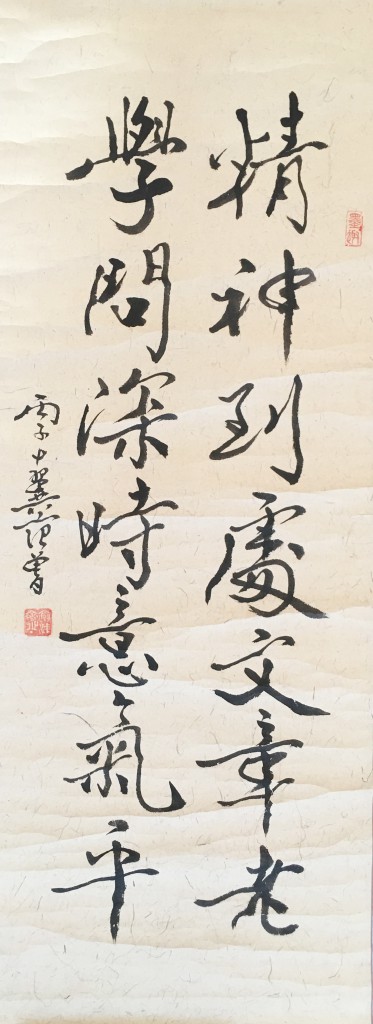 精神到處文章老
學問深時意氣平
丙子十翼范曾